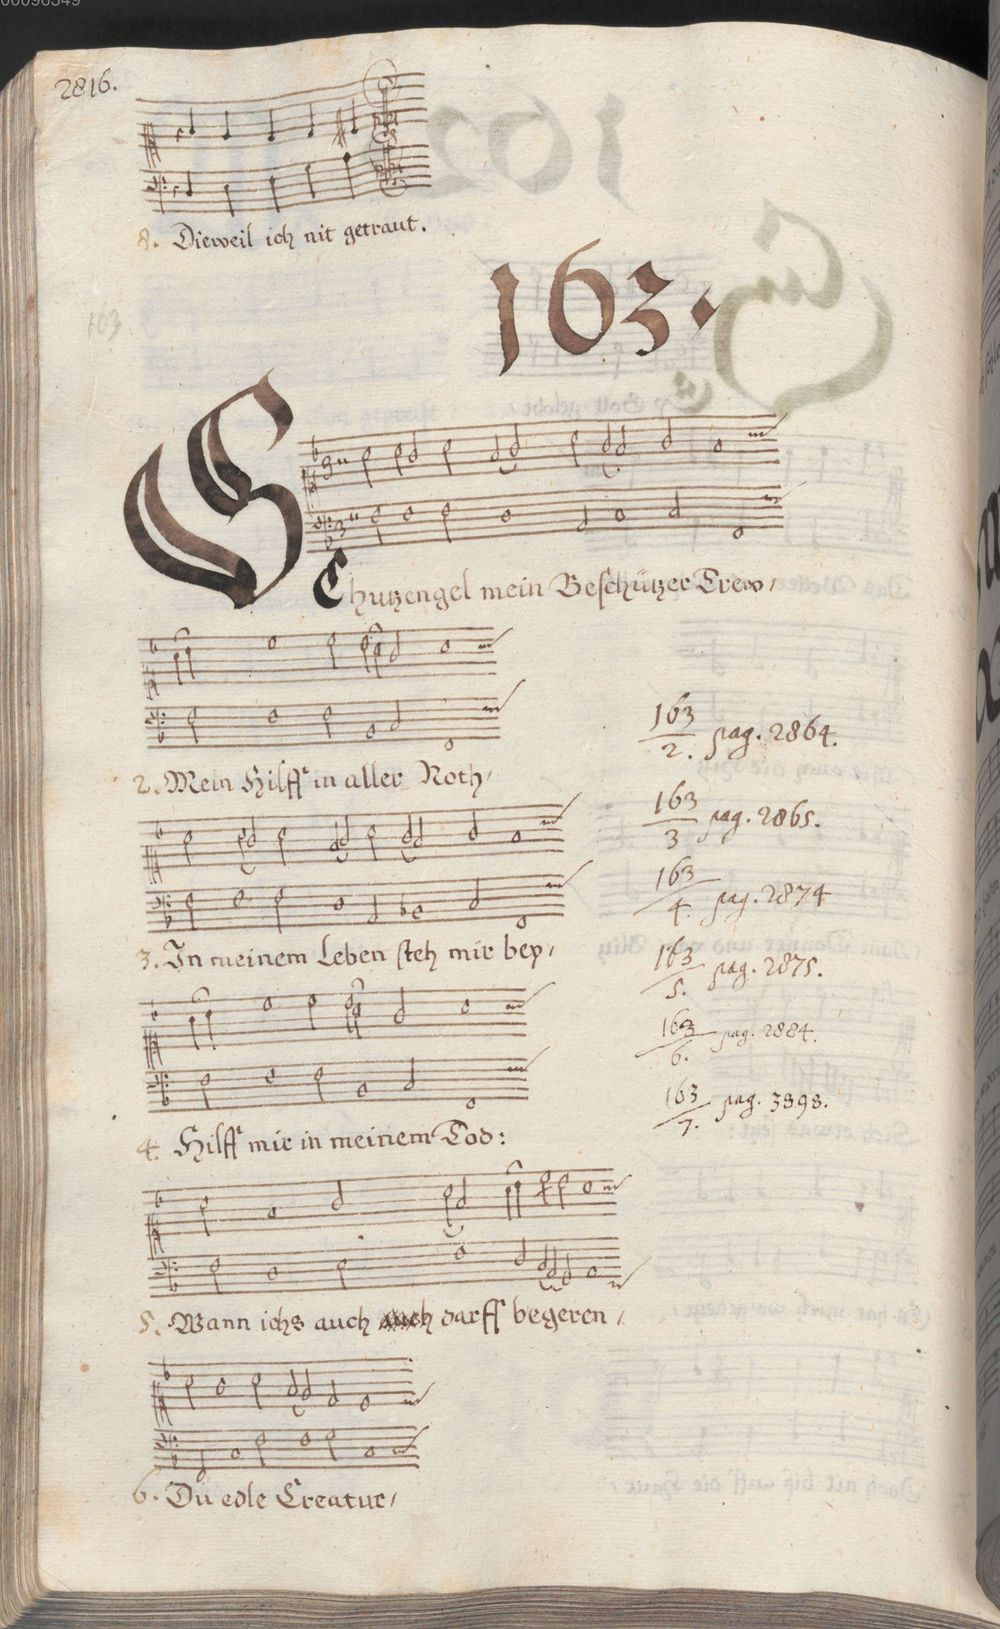 00096349
2816.
8. Dieweil ich nit getraut.
163.
163
SChutzengel mein Beschützer Trew,
2. Mein Hilff in aller Noth,
3. In meinem Leben steh mir bey,
4. Hilff mir in meinem Tod:
5. Wann ichs auch darff begeren,
6. Du edle Creatur,
163/2. pag. 2864.
163/3 pag. 2865.
163/4. pag. 2874
163/5. pag. 2875.
163/6. pag. 2884.
163/7. pag. 3898.